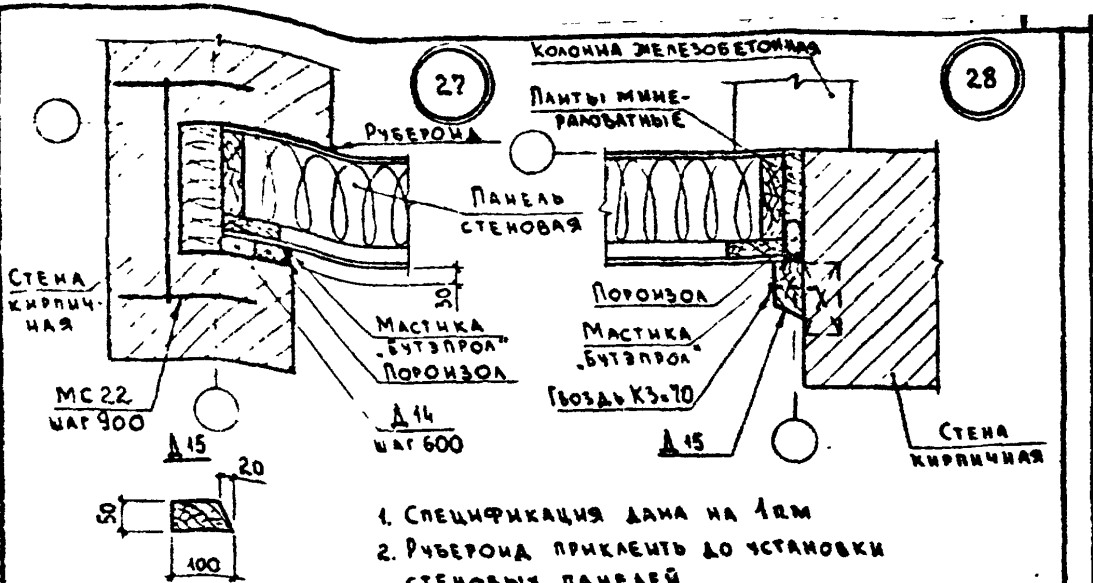 27
КОЛОННА ЖЕЛЕЗОБЕТОННАЯ
28
ПЛИТЫ МИНЕ-
РАЛОВАТНЫЕ
РУБЕРОИД
ПАНЕЛЬ
СТЕНОВАЯ
СТЕНА
КИРПИЧ-
НАЯ
30
ПОРОИЗОЛ
МАСТИКА
„БУТЭПРОЛ"
ПОРОИЗОЛ
МАСТИКА
„БУТЭПРОЛ"
ГВОЗДЬ К3×70
МС 22
ШАГ 900
Д 14
ШАГ 600
Д 15
СТЕНА
КИРПИЧНАЯ
Д 15
20
50
100
1. СПЕЦИФИКАЦИЯ ДАНА НА 1 П.М
2. РУБЕРОИД ПРИКЛЕИТЬ ДО УСТАНОВКИ
СТЕНОВЫХ ПАНЕЛЕЙ